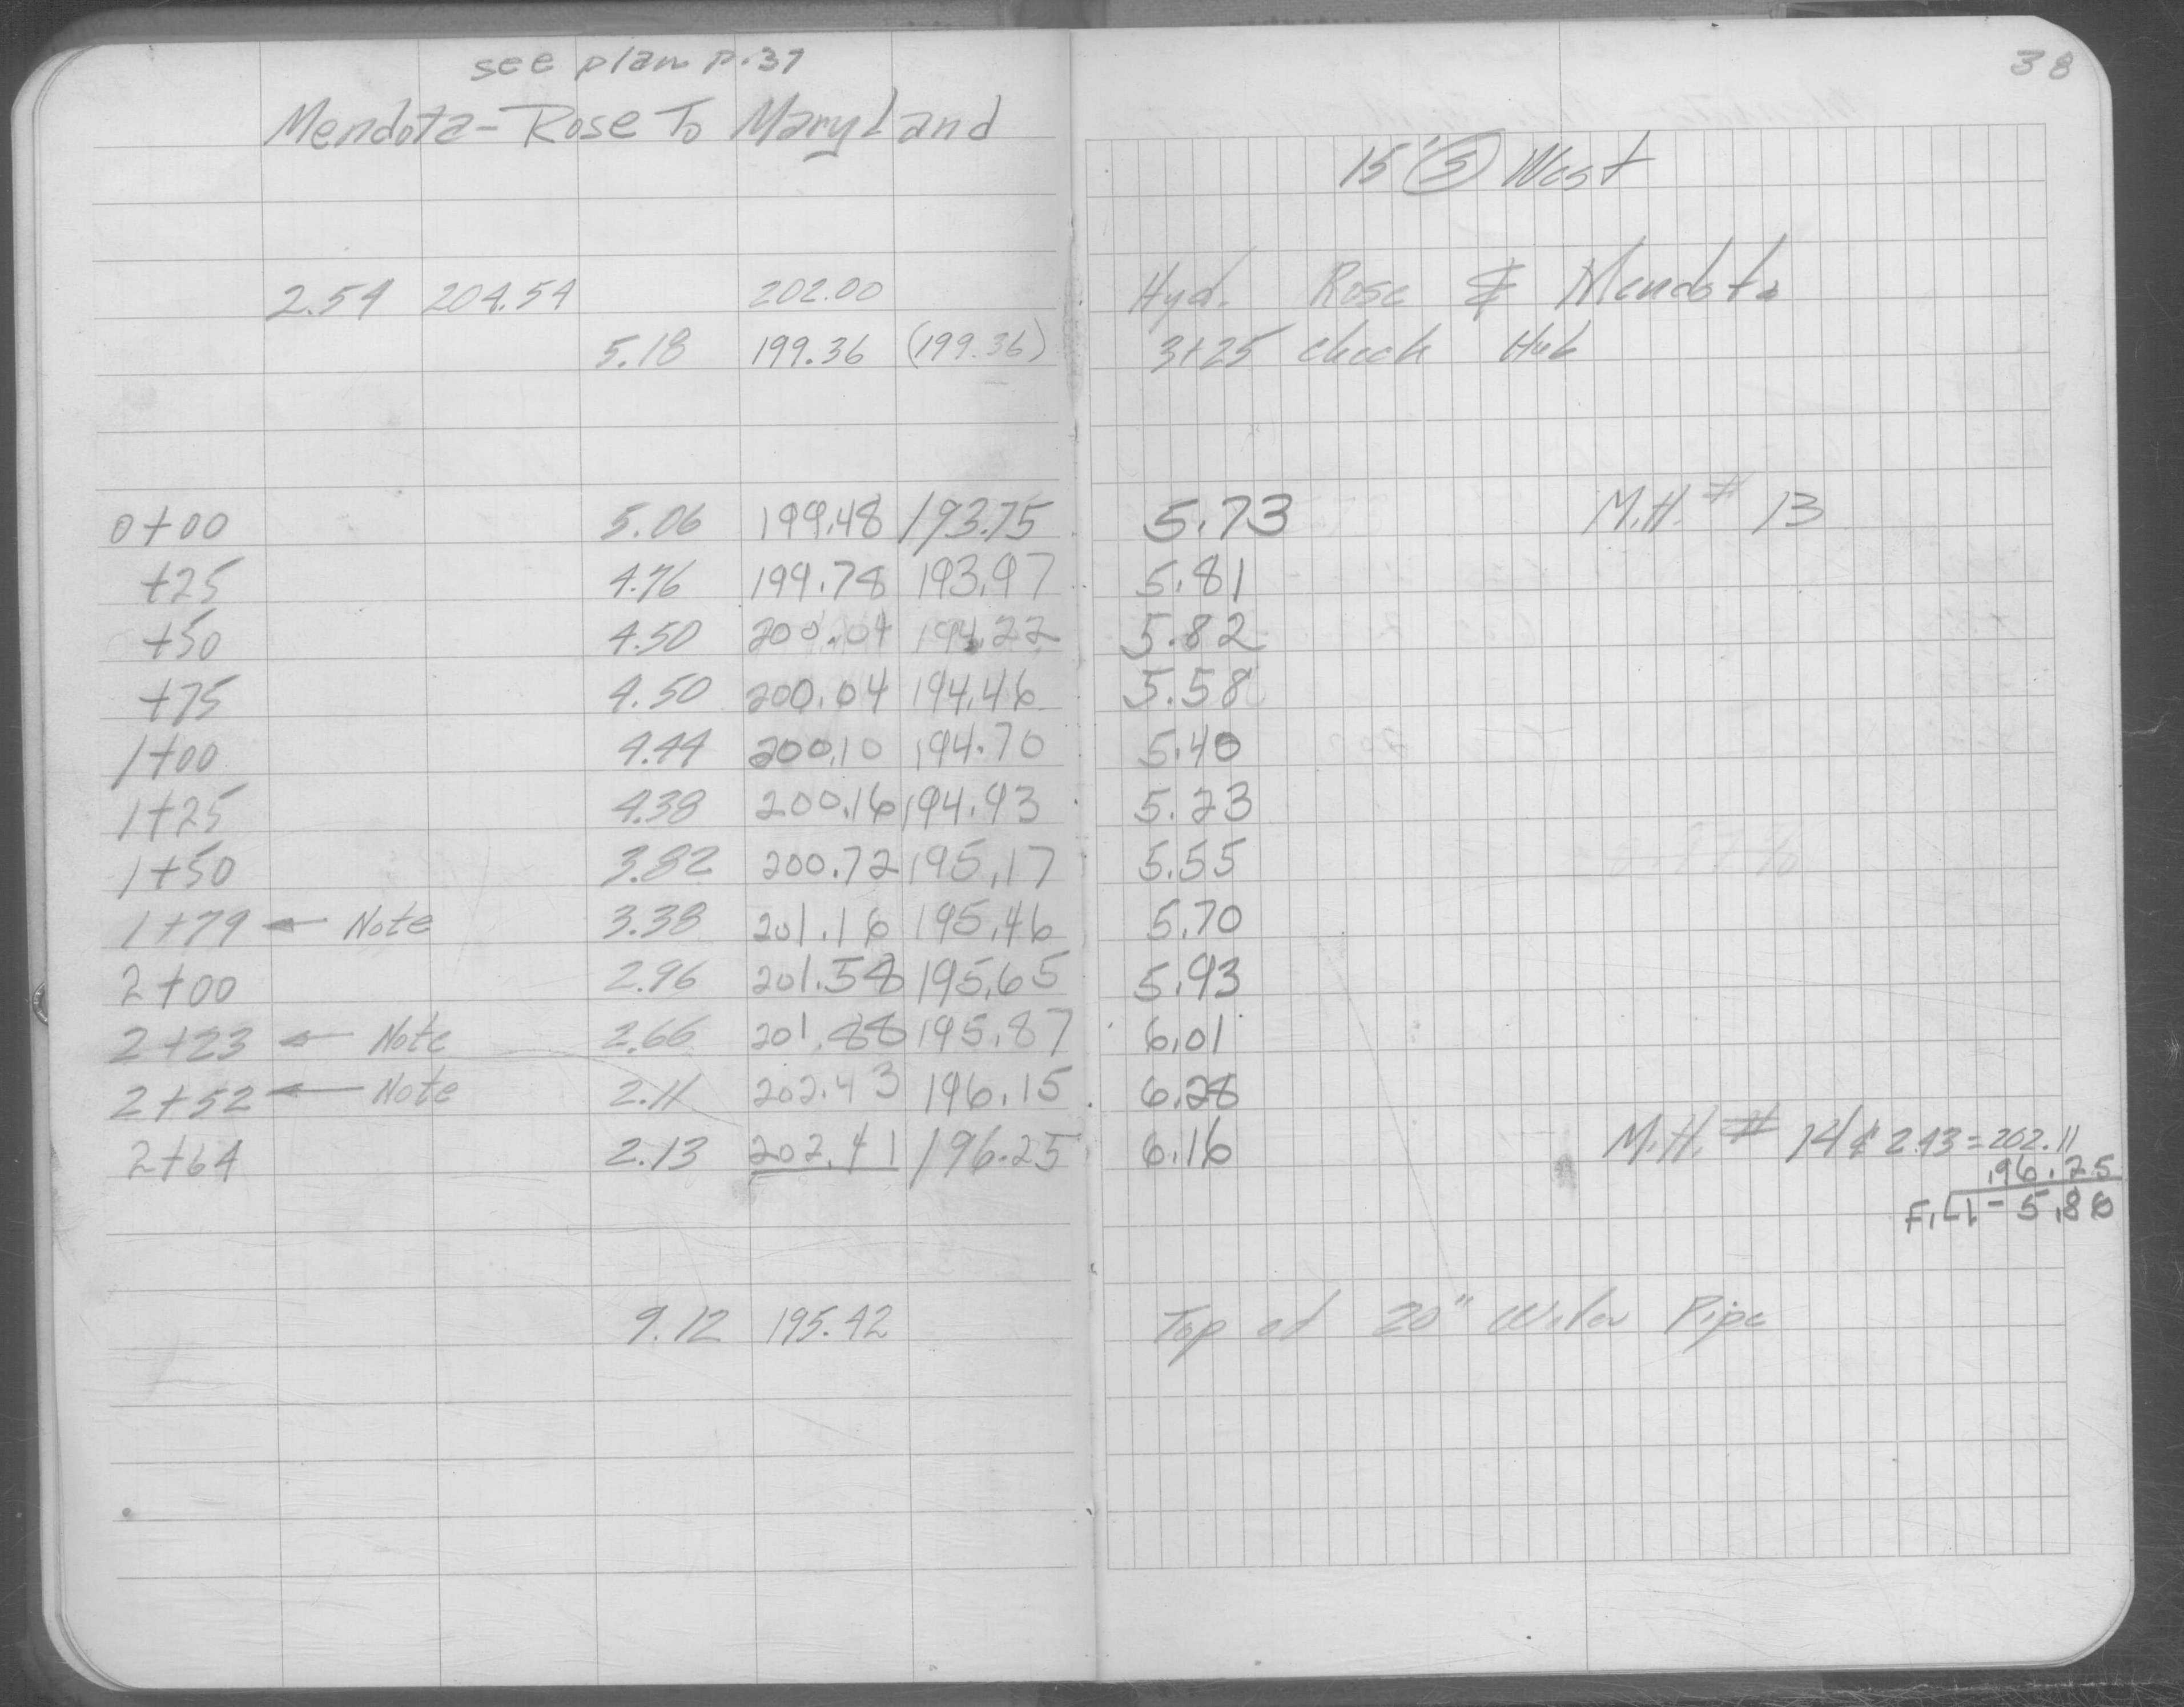 see plan p.37
38
Mendota - Rose To Maryland
15' Ⓢ West
2.54 204.54 202.00 Hyd. Rose & Mendota
5.18 199.36 (199.36) 3+25 check Hub
0+00 5.06 199.48 193.75 5.73 M.H. # 13
+25 4.76 199.78 193.97 5.81
+50 4.50 200.04 194.22 5.82
+75 4.50 200.04 194.46 5.58
1+00 4.44 200.10 194.70 5.40
1+25 4.38 200.16 194.93 5.23
1+50 3.82 200.72 195.17 5.55
1+79 ← Note 3.38 201.16 195.46 5.70
2+00 2.96 201.58 195.65 5.93
2+23 ← Note 2.66 201.88 195.87 6.01
2+52 ← Note 2.11 202.43 196.15 6.28
2+64 2.13 202.41 196.25 6.16 M.H. # 14 ¢ 2.43 = 202.11
196.25
F.L. - 5.86
9.12 195.42 Top of 20" Water Pipe